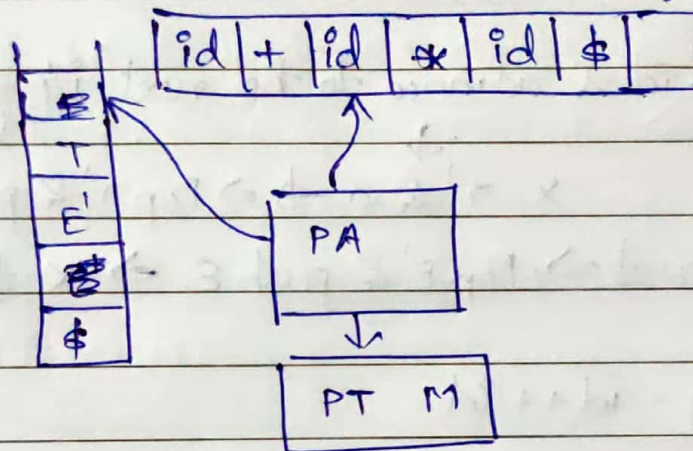 id + id * id $
T
E'
$
PA
PT M